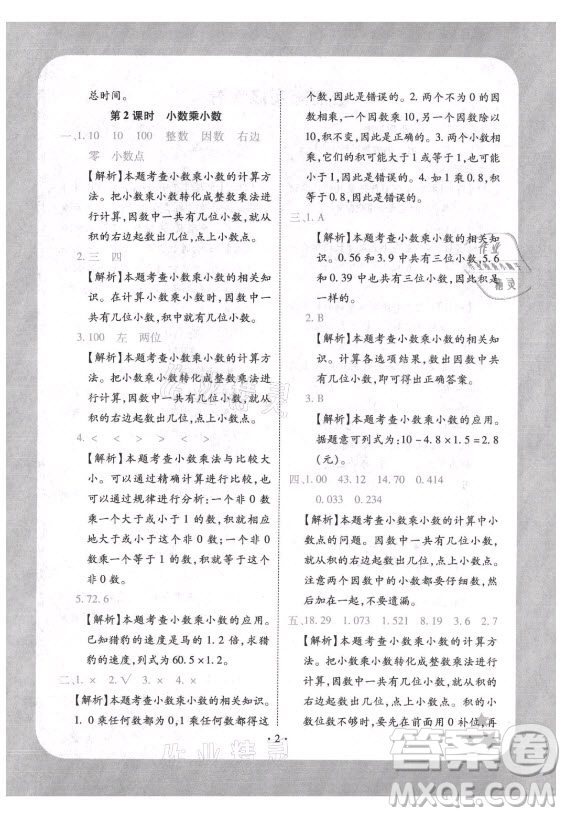 总时间。
第2课时 小数乘小数
一、1. 10 10 100 整数 因数 右边
零 小数点
【解析】本题考查小数乘小数的计算方
法。把小数乘小数转化成整数乘法进
行计算，因数中一共有几位小数，就从
积的右边起数出几位，点上小数点。
2. 三 四
【解析】本题考查小数乘小数的相关知
识。在计算小数乘小数时，因数中一
共有几位小数，积中就有几位小数。
3. 100 左 两位
【解析】本题考查小数乘小数的计算方
法。把小数乘小数转化成整数乘法进
行计算，因数中一共有几位小数，就从
积的右边起数出几位，点上小数点。
4. < < > < >
【解析】本题考查小数乘法与比较大
小。可以通过精确计算进行比较，也
可以通过规律进行分析：一个非0数
乘一个大于或小于1的数，积就相应
地大于或小于这个非0数；一个非0
数除以一个大于或小于1的数(这个
数不能为0)，商就相应地小于或大于
这个非0数。
5. 72.6
【解析】本题考查小数乘小数的应用。
已知猎豹的速度是马的1.2倍，求猎
豹的速度，列式为60.5×1.2。
二、1. × 2. √ 3. × 4. ×
【解析】本题考查小数乘小数的相关知识。
1. 0乘任何数都得0，并不大于任何一
个数，因此是错误的。2. 两个不为0的
数相乘，一个因数乘10，另一个因数除以
10，积不变，因此是正确的。3. 一个因数
是0.8，另一个因数如果是0或1，积等于
0或等于0.8，因此是错误的。4. 0.8的积
等于0.8，因此是错误的。
三、1. A
【解析】本题考查小数乘小数的相关知
识。0.56和3.9中共有三位小数，5.6
和0.39中也共有三位小数，因此积
相等。
2. B
【解析】本题考查小数乘小数的计算。
计算各选项结果，数出因数中共有
几位小数，即可得出正确答案。
3. B
【解析】本题考查小数乘小数的应用。
据题意可列式为：10-4.8×1.5=2.8
(元)。
四、1.00 43.12 14.70 0.414
0.033 0.234
【解析】本题考查小数乘小数的计算中小
数点的问题。因数中一共有几位小数，就
从积的右边起数出几位，点上小数点。
注意两个因数中的小数都要仔细数，然
后加在一起，不要遗漏。
五、18.29 1.073 1.5821 0.48 1.9 7.7
【解析】本题考查小数乘小数的计算方
法。把小数乘小数转化成整数乘法进行
计算，因数中一共有几位小数，就从积的
右边起数出几位，点上小数点。积的小
数位数不够时，要先在前面用0补位，再
点小数点。
·2·
作业精灵
答案圈
MXQE.COM